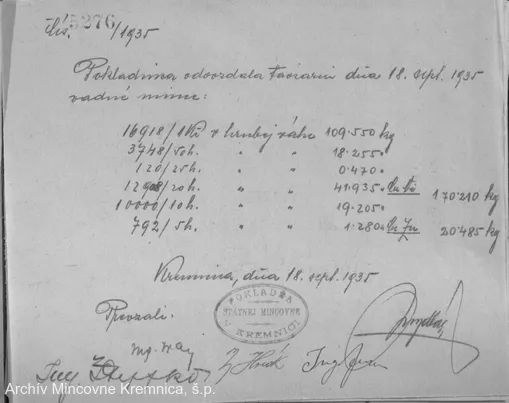 čís. 5276/1935
Pokladnica odovzdala taviarni dňa 18. sept. 1935
vadné mince:
16918/1Kč v hrubej váhe 109.550 kg
3748/50h. " " 18.255 "
120/25h. " " 0.470 "
12908/20h. " " 41.935 " 170.210 kg
10000/10h. " " 19.205 "
792/5h. " " 1.280 " 20.485 kg
Kremnica, dňa 18. sept. 1935
POKLADŇA
ŠTÁTNEJ MINCOVNE
V KREMNICI
Prevzali:
Ing.
Ing.
Archív Mincovne Kremnica, š.p.